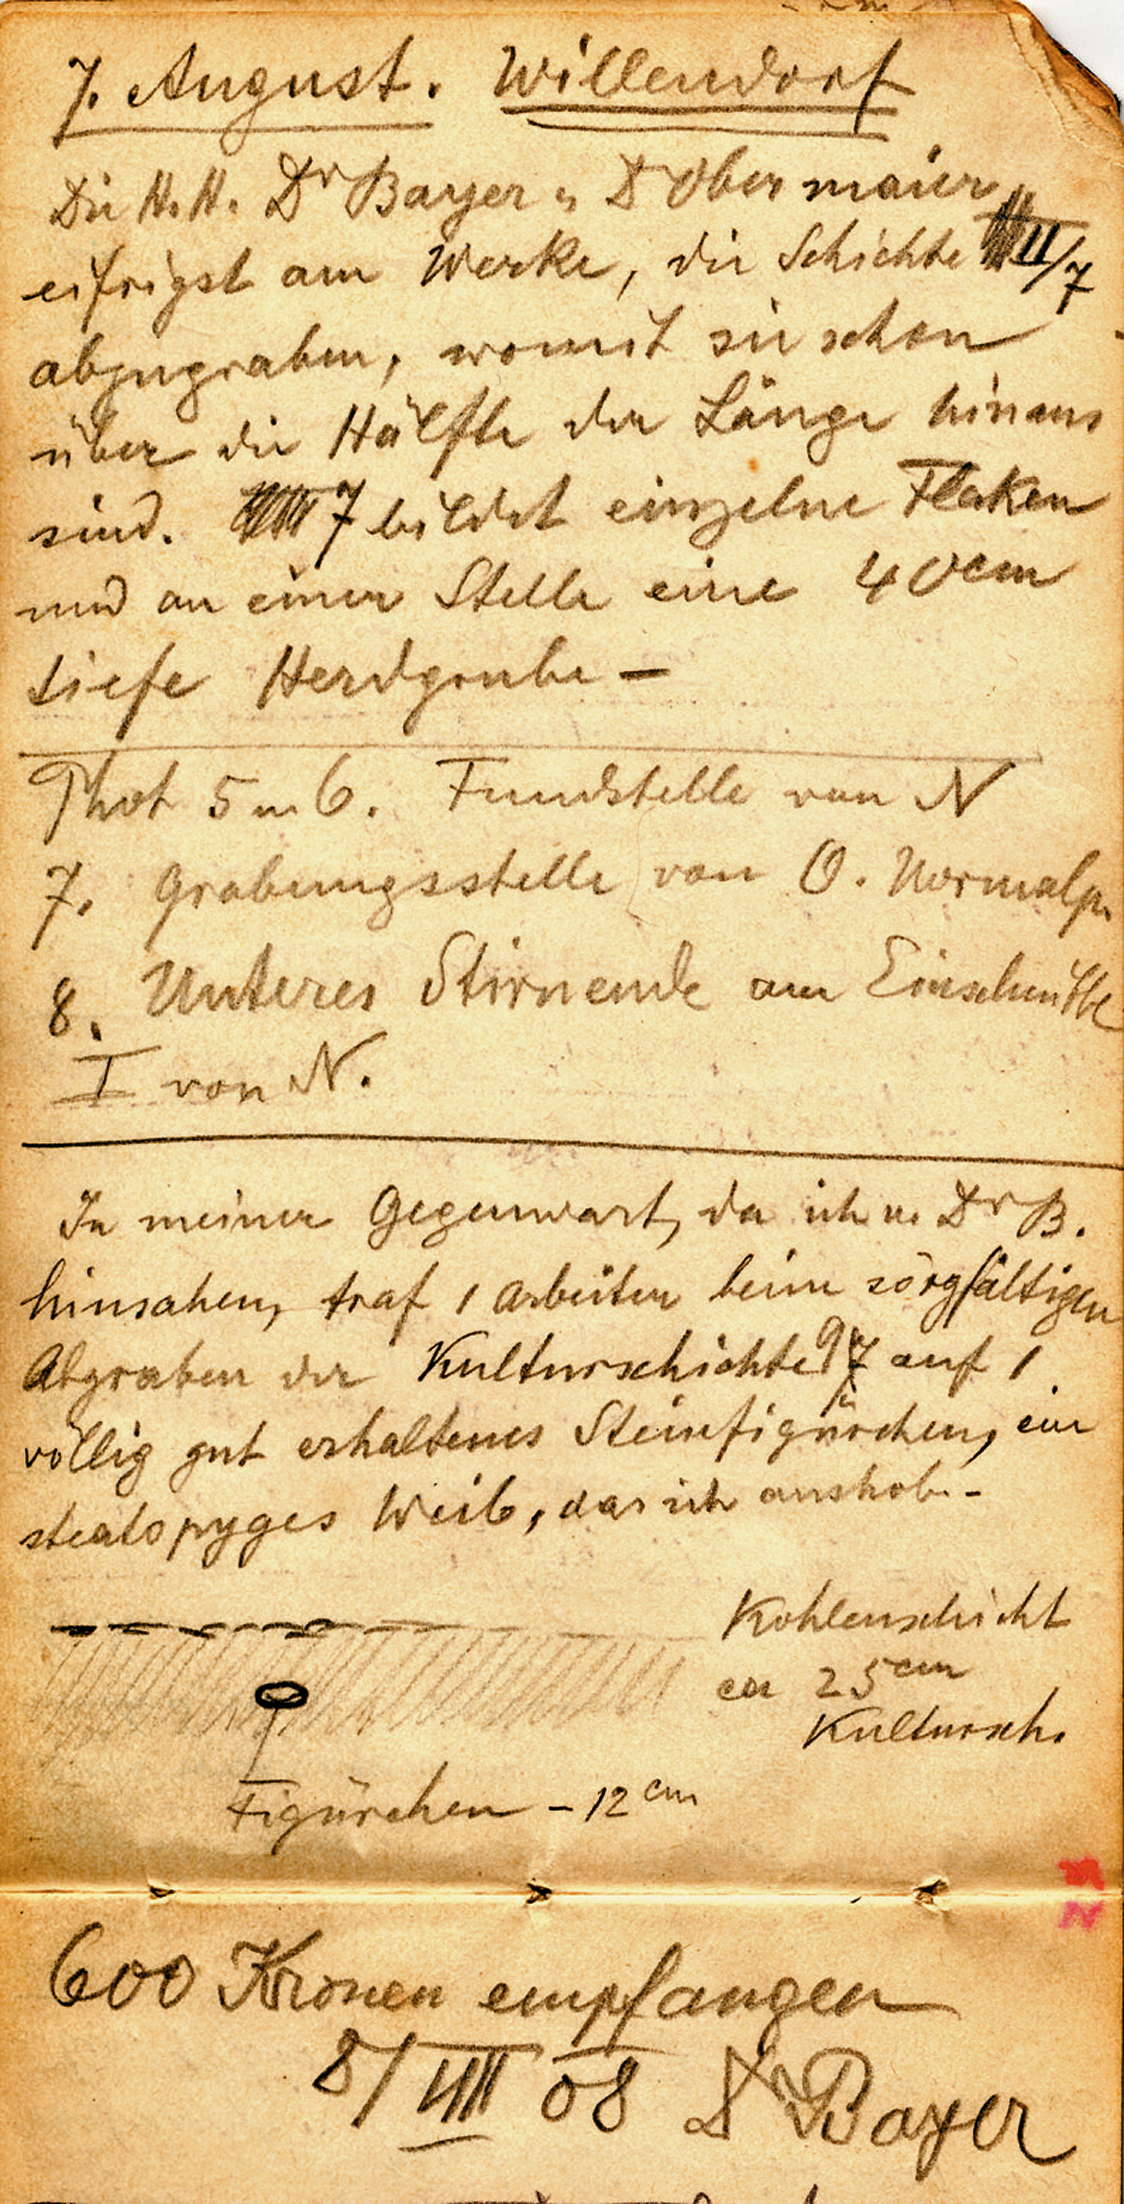 7. August. Willendorf
Die H. H. Dr Bayer u. Dr Obermaier
eifrigst am Werke, die Schichte II/7
abzugraben, womit sie schon
über die Hälfte der Länge hinaus
sind. 7 bildet einzelne Flaken
und an einer Stelle eine 40 cm
tiefe Herdgrube –
Phot 5 u 6. Fundstelle von N
7. Grabungsstelle von O. Normalp.
8. Unteres Stirnende am Einschnitte
I von N.
In meiner Gegenwart, da ich u. Dr B.
hinsahen, traf 1 Arbeiter beim sorgfältigen
Abgraben der Kulturschichte 9 auf 1
völlig gut erhaltenes Steinfigürchen, ein
steatopyges Weib, das ich aushob. –
Kohlenschicht
ca 25 cm
Kultursch.
Figürchen – 12 cm
600 Kronen empfangen
8/VIII 08 Dr Bayer